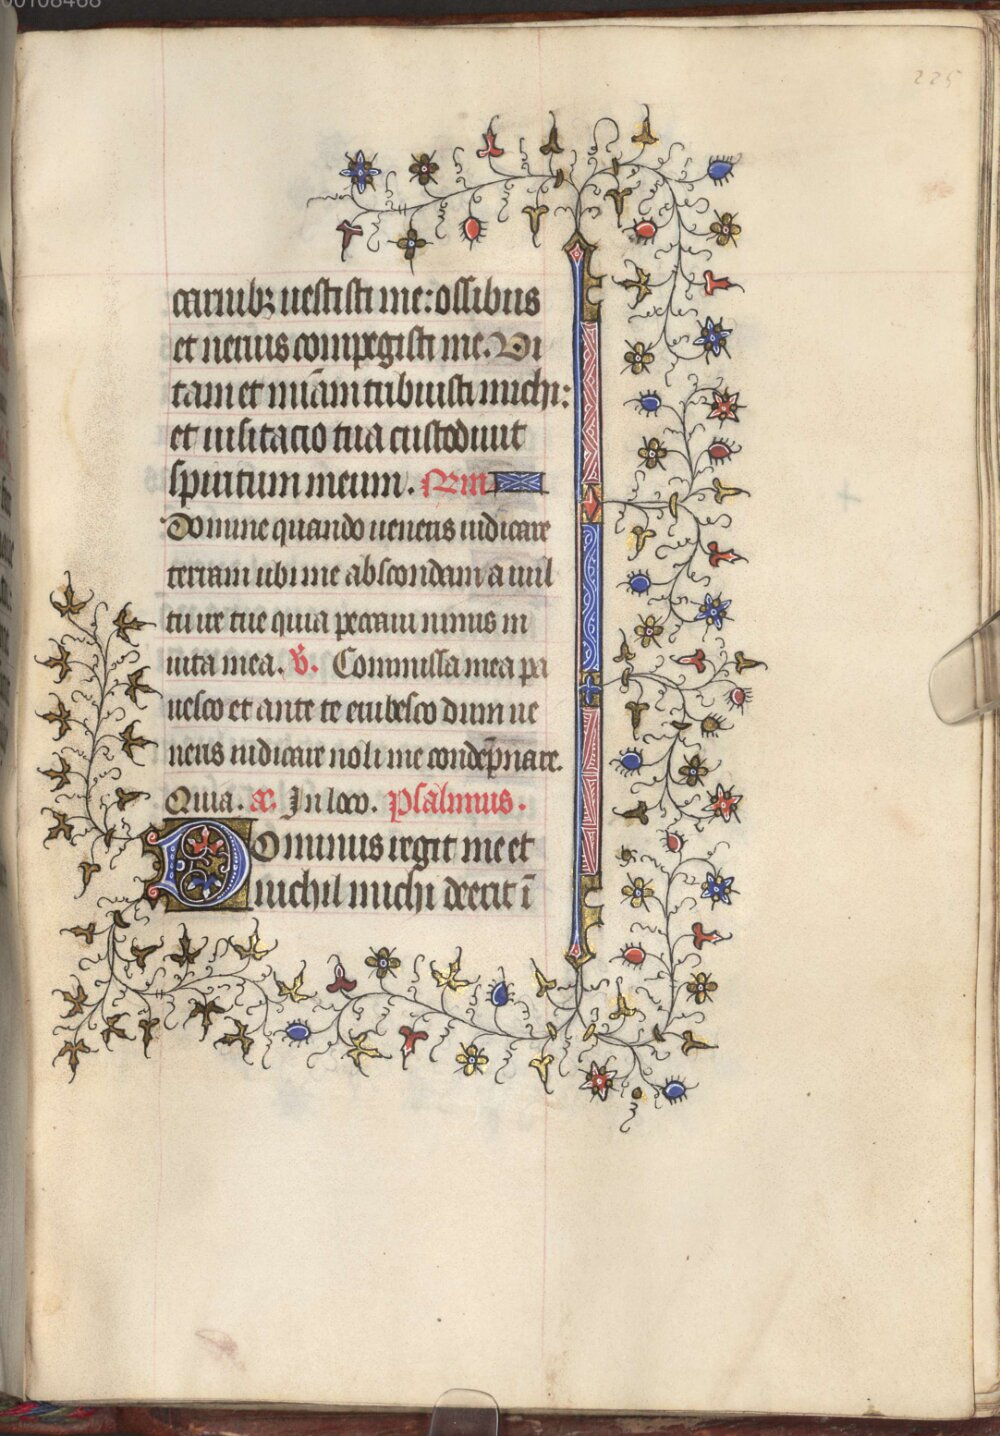 00108468
225
carnibꝫ uestisti me: ossibus
et neruis compegisti me. Vi
tam et mīam tribuisti michi:
et uisitacio tua custodiuit
spiritum meum. Rm
Domine quando ueneris iudicare
terram ubi me abscondam a uul
tu ire tue quia peccaui nimis in
uita mea. v̄. Commissa mea pa
uesco et ante te erubesco dum ue
neris iudicare noli me condēpnare.
Quia. a. In loco. psalmus.
Dominus regit me et
nichil michi deerit ī